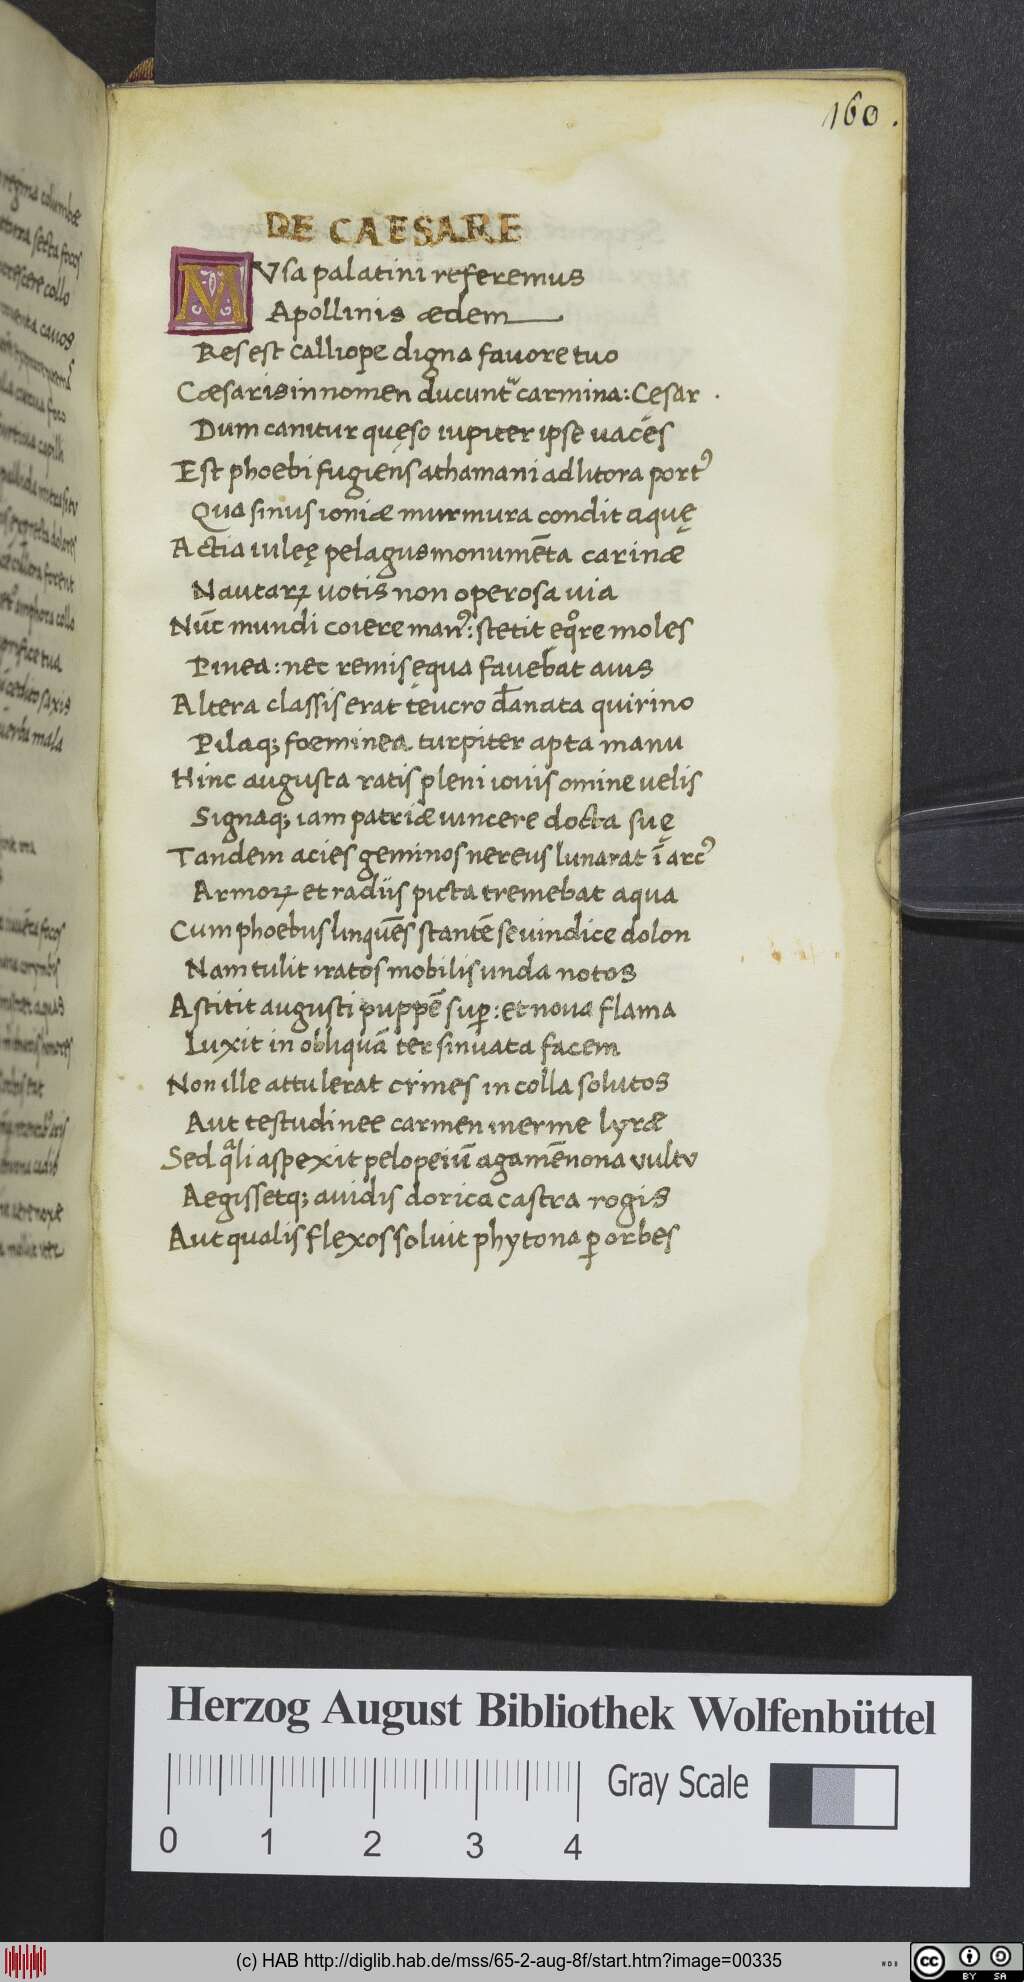 160.
DE CAESARE
MVsa palatini referemus
Apollinis ædem
Res est calliope digna fauore tuo
Cæsaris in nomen ducunt͛ carmina: Cęsar .
Dum canitur quęso iupiter ipse uaces
Est phoebi fugiens athamani ad litora port᾽
Qua sinus ioniæ murmura condit aquę
Actia iuleę pelagus monumēta carinæ
Nautaꝝ uotis non operosa uia
Nūc mundi coiere man᾽: stetit ęqͦre moles
Pinea: nec remis ęqua fauebat auis
Altera classis erat teucro dānata quirino
Pilaq; foeminea turpiter apta manu
Hinc augusta ratis pleni iouis omine uelis
Signaq; iam patriæ uincere docta suę
Tandem acies geminos nereus lunarat ī arc᾽
Armoꝝ et radiis picta tremebat aqua
Cum phoebus linquēs stantē se uindice dolon
Nam tulit iratos mobilis unda notos
Astitit augusti puppē suꝑ: et noua flama
Luxit in obliquā ter sinuata facem
Non ille attulerat crines in colla solutos
Aut testudinee carmen inerme lyræ
Sed qͣli aspexit pelopeiū agamēnona uultu
Aegissetq; auidis dorica castra rogis
Aut qualis flexos soluit phytona ꝑ orbes
regina columbæ
collo
cauos
capilli
dolores
forent
amphora collo
tua
saxis
mala
focos
aquas
Herzog August Bibliothek Wolfenbüttel
0 1 2 3 4
Gray Scale
(c) HAB http://diglib.hab.de/mss/65-2-aug-8f/start.htm?image=00335
cc BY SA